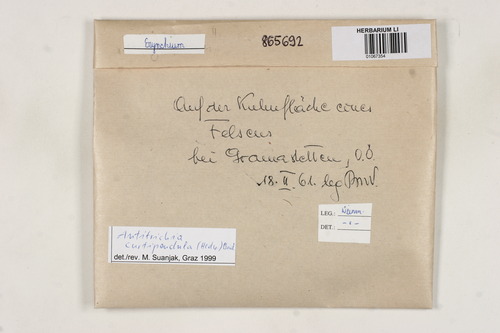 865692
HERBARIUM LI
01067354
Auf der Kulmfläche eines
Felsens
bei Gramastetten, O.Ö.
18. II. 61. leg
LEG.:
DET.: - " -
Antitrichia
curtipendula (Hedw.) Brid.
det./rev. M. Suanjak, Graz 1999